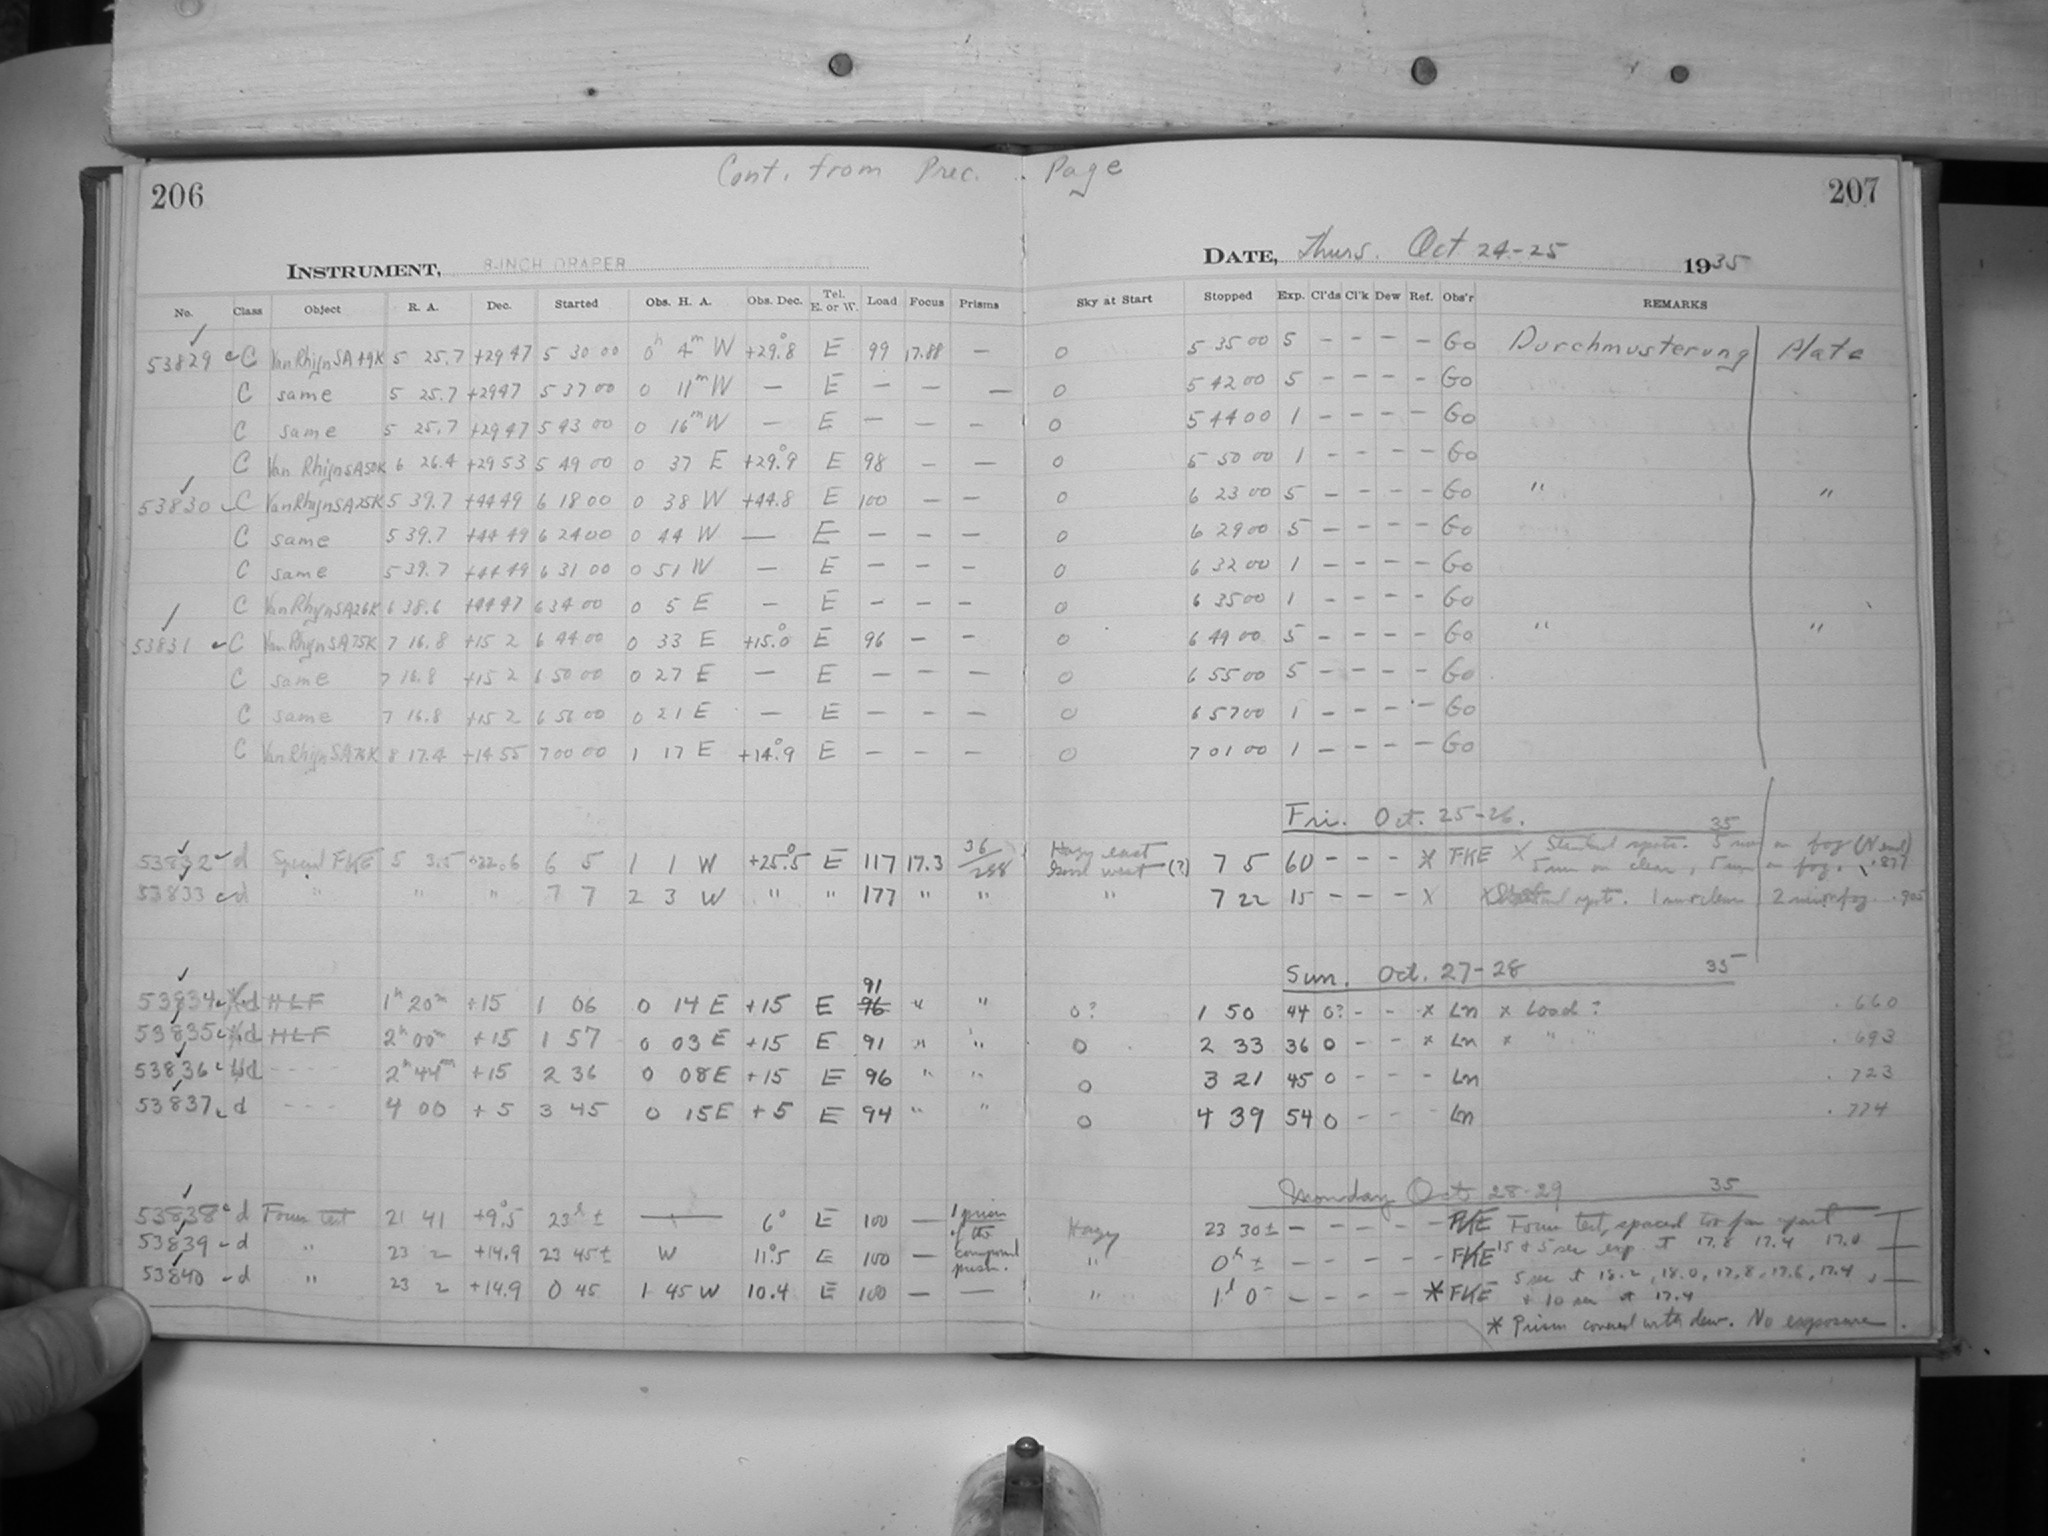 Cont. from Prec. Page
206 207
INSTRUMENT, 8-INCH DRAPER DATE, Thurs. Oct 24-25 1935
No. Class Object R. A. Dec. Started Obs. H. A. Obs. Dec. Tel. E. or W. Load Focus Prisms Sky at Start Stopped Exp. Cl'ds Cl'k Dew Ref. Obs'r REMARKS
53829 C Van Rhijn SA 49K 5 25.7 +29 47 5 30 00 0h 4m W +29°.8 E 99 17.88 — 0 5 35 00 5 - - - - Go Durchmusterung Plate
C same 5 25.7 +2947 5 37 00 0 11m W — E — — — 0 5 42 00 5 - - - - Go
C same 5 25.7 +2947 5 43 00 0 16m W — E — - - 0 5 44 00 1 - - - - Go
C Van Rhijn SA50K 6 26.4 +29 53 5 49 00 0 37 E +29°.9 E 98 - — 0 5 50 00 1 - - - - Go
53830 C Van Rhijn SA25K 5 39.7 +44 49 6 18 00 0 38 W +44.8 E 100 - — 0 6 23 00 5 - - - - Go " "
C same 5 39.7 +44 49 6 24 00 0 44 W — E — — — 0 6 29 00 5 - - - - Go
C same 5 39.7 +44 49 6 31 00 0 51 W — E — — — 0 6 32 00 1 - - - - Go
C Van Rhijn SA26K 6 38.6 +44 47 6 34 00 0 5 E — E — — — 0 6 35 00 1 - - - - Go
53831 C Van Rhijn SA75K 7 16.8 +15 2 6 44 00 0 33 E +15°.0 E 96 — — 0 6 49 00 5 - - - - Go " "
C same 7 16.8 +15 2 6 50 00 0 27 E — E — — — 0 6 55 00 5 - - - - Go
C same 7 16.8 +15 2 6 56 00 0 21 E — E — — — 0 6 57 00 1 - - - - Go
C Van Rhijn SA76K 8 17.4 +14 55 7 00 00 1 17 E +14°.9 E — — — 0 7 01 00 1 - - - - Go
Fri. Oct. 25-26. 35
53832 d Special FKE 5 3.5 +22.6 6 5 1 1 W +25°.5 E 117 17.3 36/288 Hazy east Good west (?) 7 5 60 - - - X FKE X Standard spots. 5 min on fog (N end)
5 min on clear, 5 min on fog. .877
53833 d " " " 7 7 2 3 W " " 177 " " " 7 22 15 - - - X spots. 1 min clear 2 min on fog .905
Sun. Oct. 27-28 35
91
53834 d HLF 1h 20m +15 1 06 0 14 E +15 E 96 " " 0? 1 50 44 0? - - x Ln x Load? .660
53835 d HLF 2h 00m +15 1 57 0 03 E +15 E 91 " " 0 2 33 36 0 - - x Ln x " " .693
53836 d - - - - 2h 44m +15 2 36 0 08 E +15 E 96 " " 0 3 21 45 0 - - - Ln .723
53837 d - - - 4 00 +5 3 45 0 15 E +5 E 94 " " 0 4 39 54 0 - - - Ln .774
Monday Oct 28-29 35
53838 d Focus test 21 41 +9°.5 23h ± — 6° E 100 — 1 prism of the Hazy 23 30± - - - - - FKE Focus test, spaced too far apart
53839 d " 23 2 +14.9 23 45± W 11°.5 E 100 — compound prism. " 0h ± - - - - - FKE 15 + 5 sec exp. at 17.8 17.4 17.0
53840 d " 23 2 +14.9 0 45 1 45 W 10.4 E 100 — — " 1h 0 - - - - * FKE 5 sec at 18.2, 18.0, 17.8, 17.6, 17.4,
+ 10 sec at 17.4
* Prism covered with dew. No exposure.